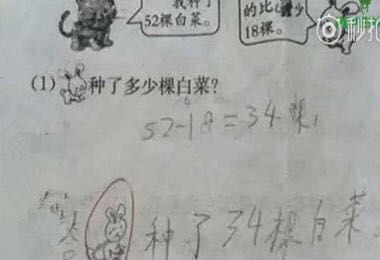 我种了
52棵白菜。
的比 少
18棵。
秒拍
(1) 种了多少棵白菜?
52-18=34棵
答: 种了34棵白菜。